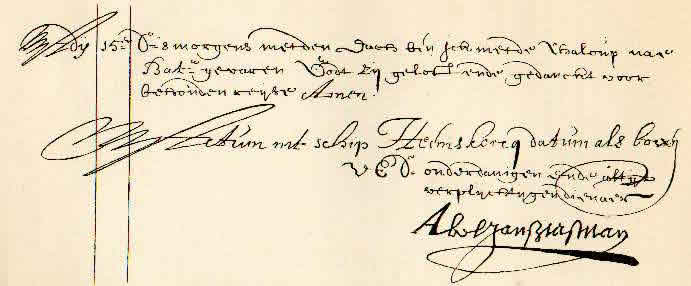 dij 15en do smorgens metden dach bin ick mede Chaloup nae
Bata gevaren Godt zij gelooft ende gedanckt voor
behouden reijse Amen.
Actum int schip Heemskercq datum als boven
V Ed onderdanigen ende altijt
verplichtingen dienaer
Abel Jansz Tasman